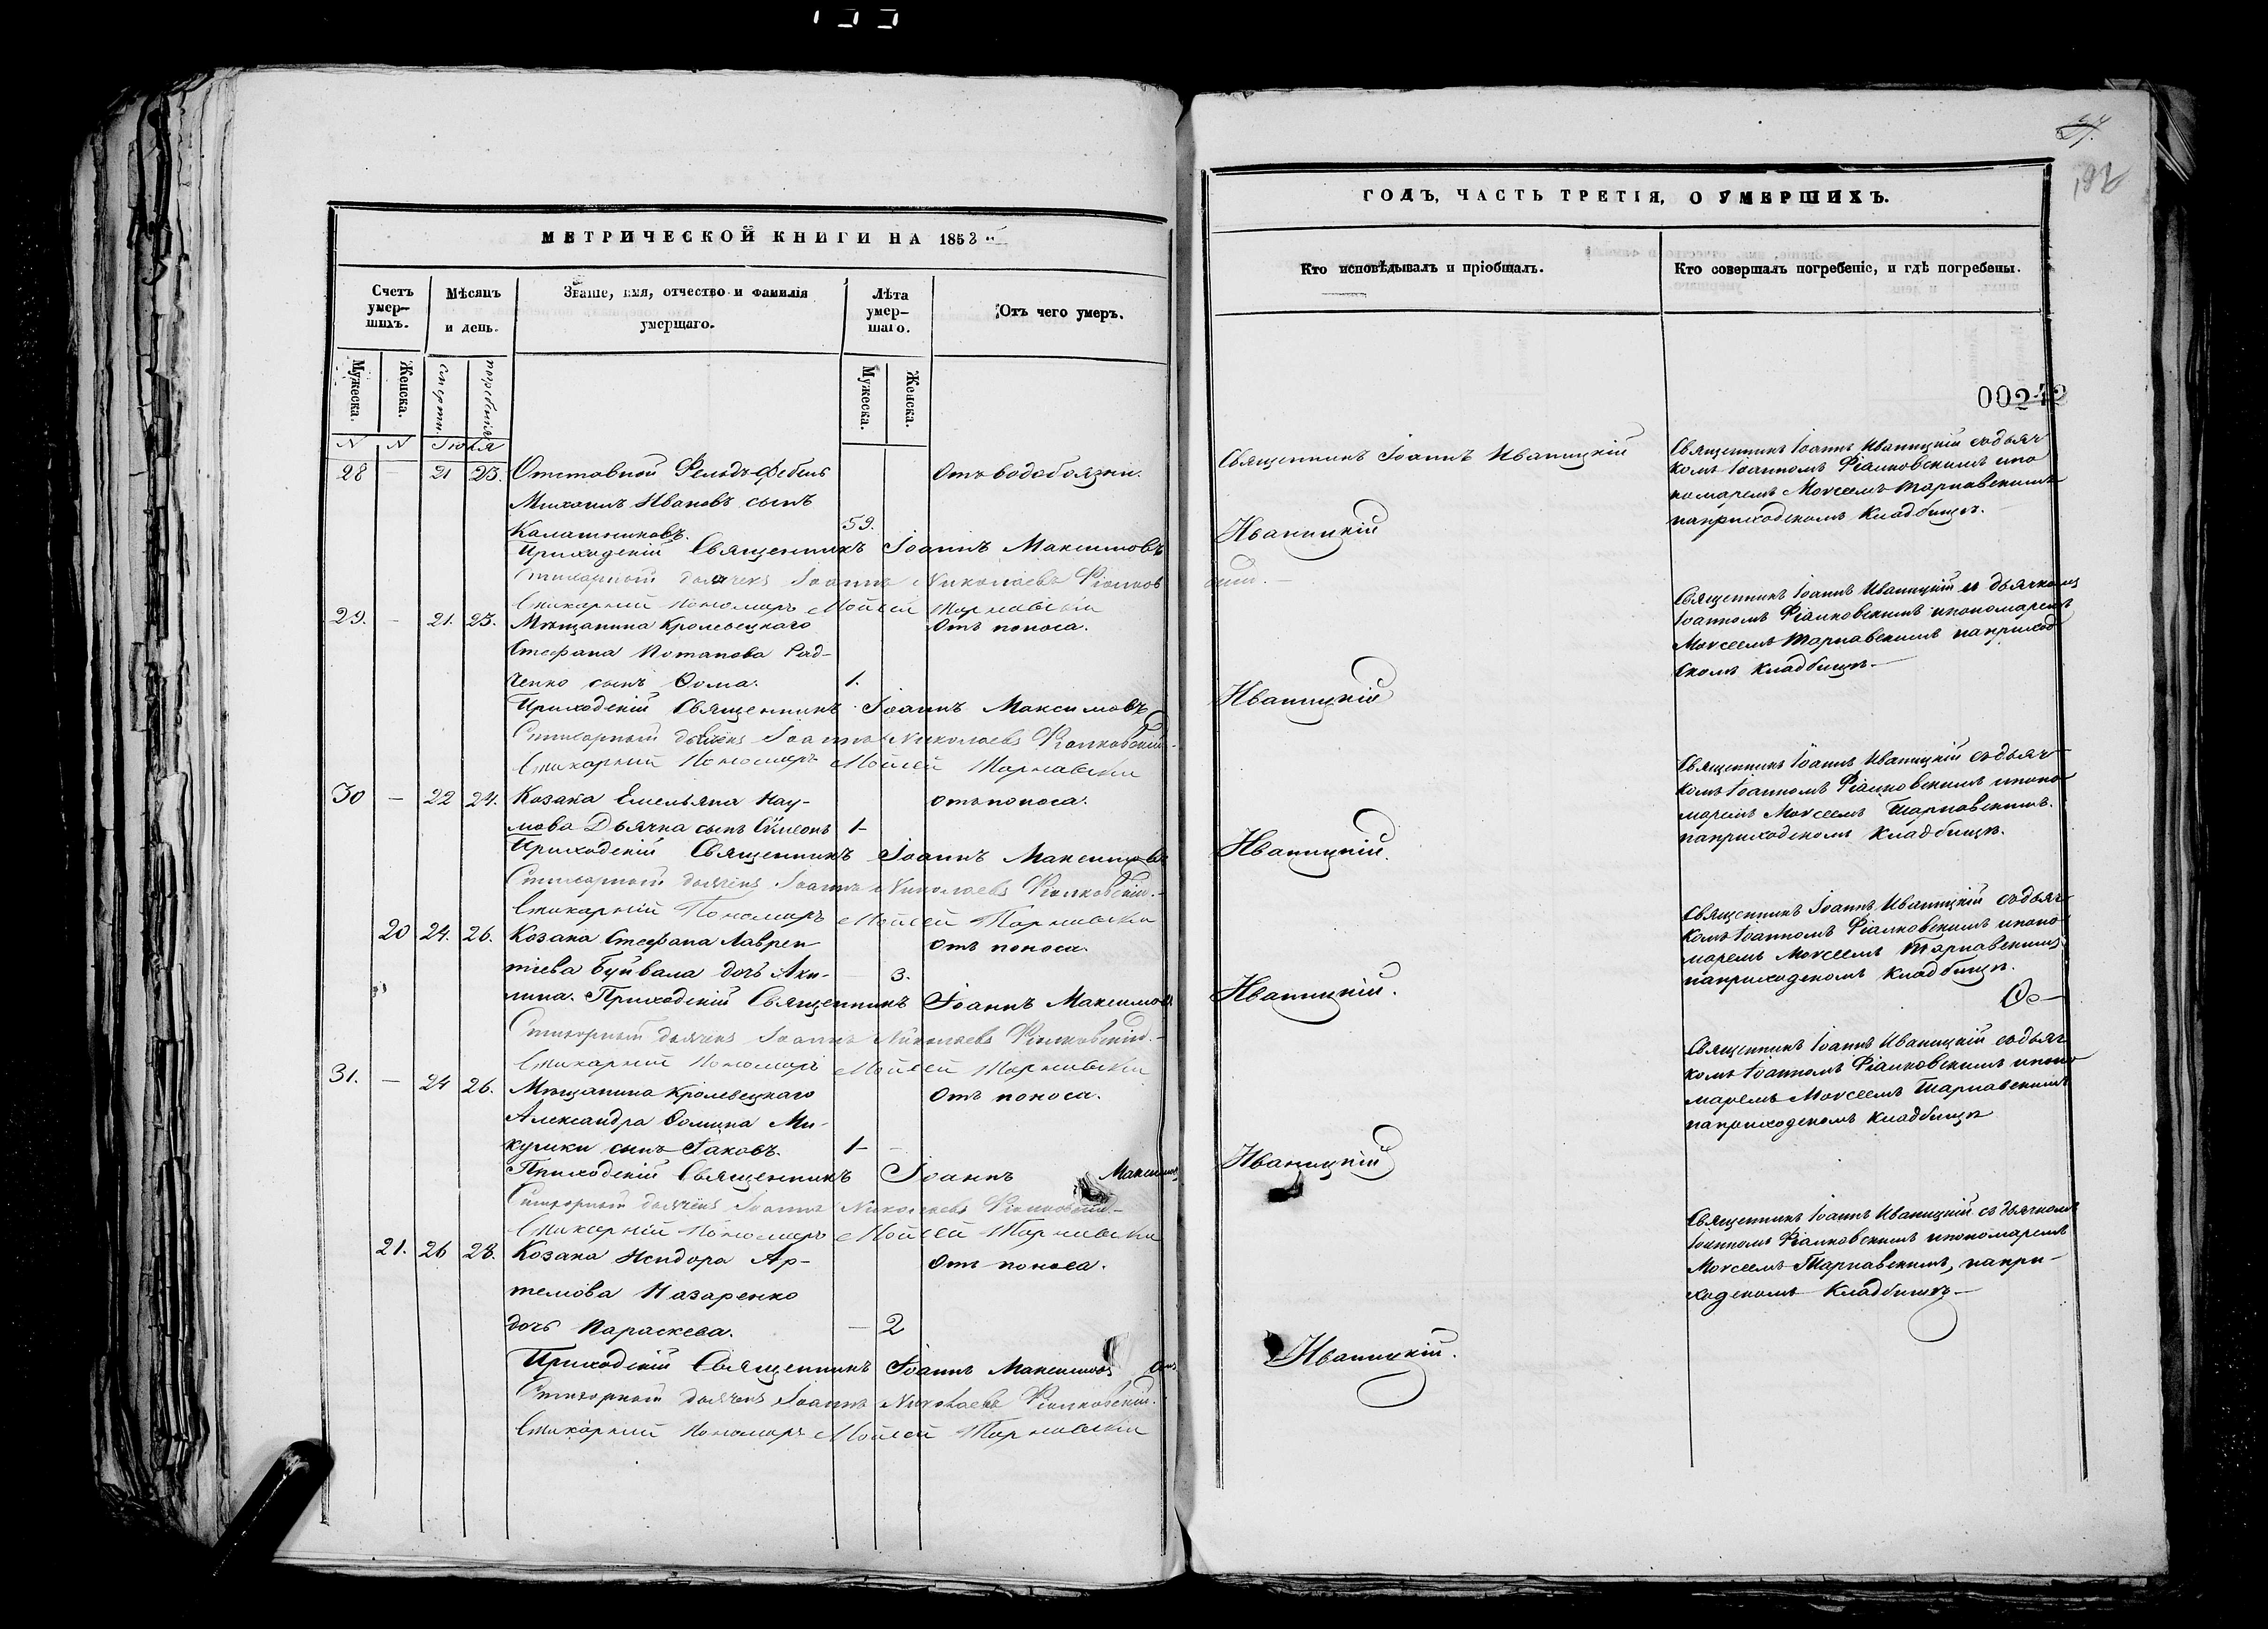 МЕТРИЧЕСКОЙ КНИГИ НА 1853
Счетъ умер-шихъ.
Мѣсяцъ и день.
Званіе, имя, отчество и фамилія умершаго.
Лѣта умер-шаго.
Отъ чего умеръ.
Мужеска.
Женска.
смерти.
погребенія
Мужеска.
Женска.
N N Іюля
28 — 21 23. Отставной Фельдъфебель Отъ водобоязни.
Михаилъ Ивановъ сынъ
Калашниковъ. 59.
Приходскій Священникъ Іоаннъ Максимовъ Иваницкій
Стихарный дьячекъ Іоаннъ Николаевъ Фіалков
Стихарный Пономарь Мойсей Тарнавскій
29. — 21. 23. Мѣщанина Кролевецкаго Отъ поноса.
Стефана Потапова Рад-
ченко сынъ Ѳома. 1.
Приходскій Священникъ Іоаннъ Максимовъ Иваницкій
Стихарный дьячекъ Іоаннъ Николаевъ Фіалковскій
Стихарный Пономарь Мойсей Тарнавскій
30 — 22 24. Козака Емельяна Нау- отъ поноса.
мова Дьячка сынъ Сѵмеонъ 1 —
Приходскій Священникъ Іоаннъ Максимовъ Иваницкій.
Стихарный дьячекъ Іоаннъ Николаевъ Фіалковскій.
Стихарный Пономарь Мойсей Тарнавскій
20 24. 26. Козака Стефана Лаврен- отъ поноса.
тіева Буйвала дочь Аки- — 3.
лина. Приходскій Священникъ Іоаннъ Максимов Иваницкій.
Стихарный дьячекъ Іоаннъ Николаевъ Фіалковскій.
Стихарный Пономарь Мойсей Тарнавскій
31. — 24 26. Мѣщанина Кролевецкаго Отъ поноса.
Александра Ѳомина Ми-
кулки сынъ Іаковъ. 1 —
Приходскій Священникъ Іоаннъ Максимов Иваницкій
Стихарный дьячекъ Іоаннъ Николаевъ Фіалковскій
Стихарный Пономарь Мойсей Тарнавскій
21. 26 28. Козака Исидора Ар- Отъ поноса.
темова Назаренко
дочь Параскева. — 2
Приходскій Священникъ Іоаннъ Максимовъ Иваницкій.
Стихарный дьячекъ Іоаннъ Николаевъ Фіалковскій.
Стихарный Пономарь Мойсей Тарнавскій
ГОДЪ, ЧАСТЬ ТРЕТІЯ, О УМЕРШИХЪ.
Кто исповѣдывалъ и пріобщалъ.
Кто совершалъ погребеніе, и гдѣ погребены.
Священникъ Іоаннъ Иваницкій
Священникъ Іоаннъ Иваницкій съ дьяч
комъ Іоанномъ Фіалковскимъ и по
номаремъ Моѵсеемъ Тарнавскимъ
на приходскомъ кладбищѣ.
Священникъ Іоаннъ Иваницкій съ дьячкомъ
Іоанномъ Фіалковскимъ и пономаремъ
Моѵсеемъ Тарнавскимъ на приход
скомъ кладбищѣ.
Священникъ Іоаннъ Иваницкій съ дьяч
комъ Іоанномъ Фіалковскимъ и поно
маремъ Моѵсеемъ Тарнавскимъ.
на приходскомъ кладбищѣ.
Священникъ Іоаннъ Иваницкій съ дьяч
комъ Іоанномъ Фіалковскимъ и поно
маремъ Моѵсеемъ Тарнавскимъ
на приходскомъ кладбищѣ.
Священникъ Іоаннъ Иваницкій съ дьяч
комъ Іоанномъ Фіалковскимъ и поно
маремъ Моѵсеемъ Тарнавскимъ
на приходскомъ кладбищѣ
Священникъ Іоаннъ Иваницкій съ дьячкомъ
Іоанномъ Фіалковскимъ и пономаремъ
Моѵсеемъ Тарнавскимъ, на при-
ходскомъ кладбищѣ